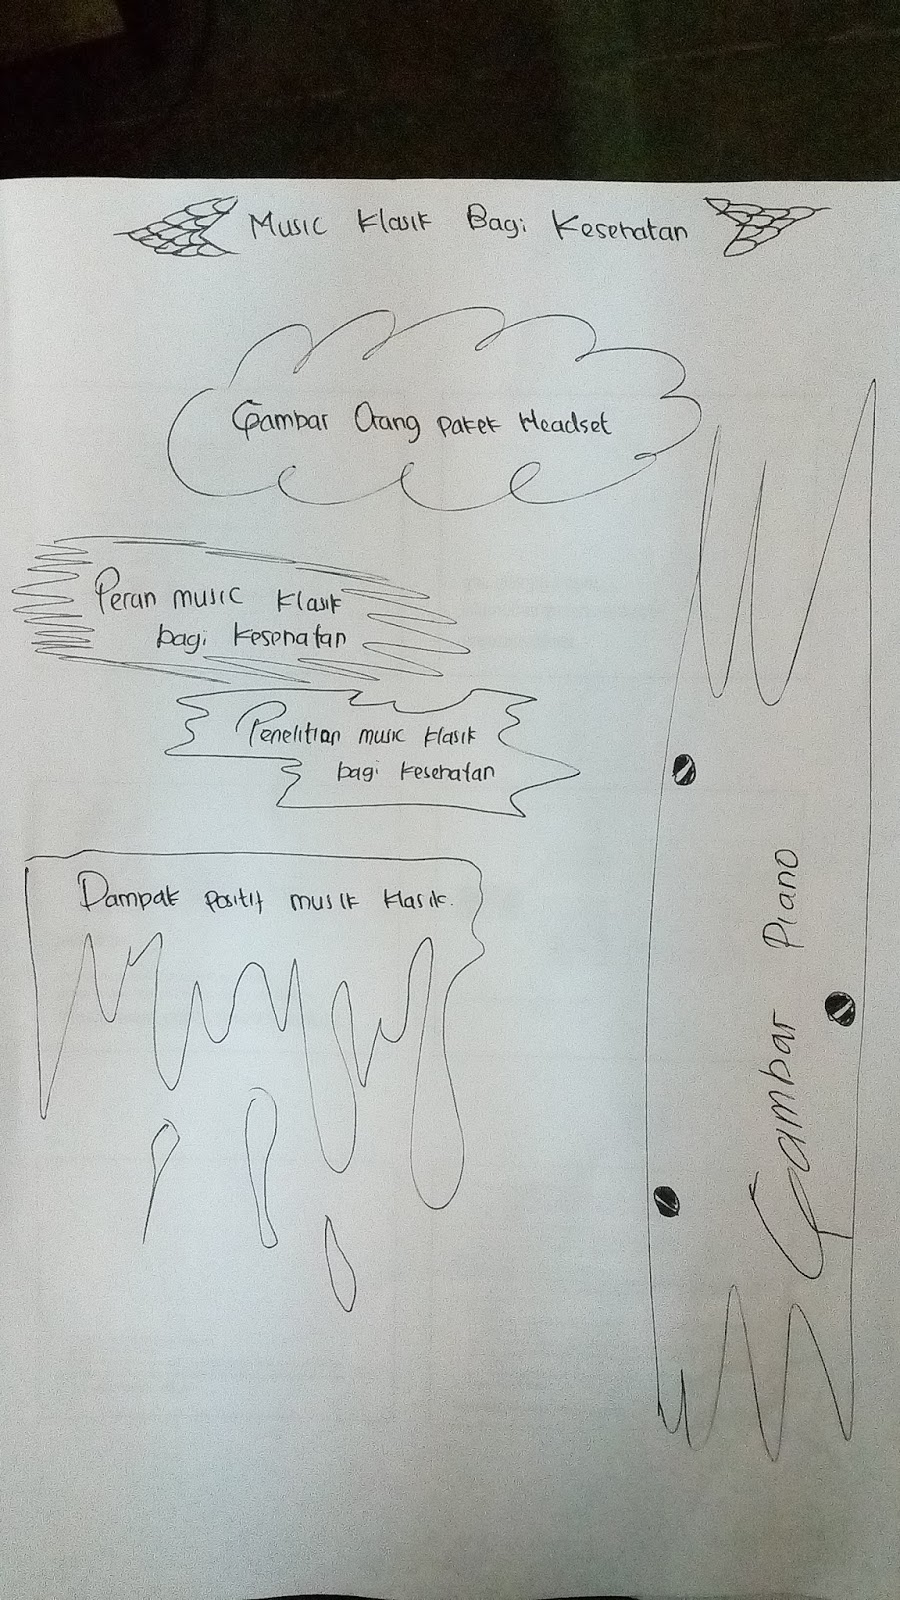 Music Klasik Bagi Kesehatan
Gambar Orang pakek Headset
Peran music klasik
bagi kesehatan
Penelitian music klasik
bagi kesehatan
Dampak positif musik klasik.
Gambar Piano